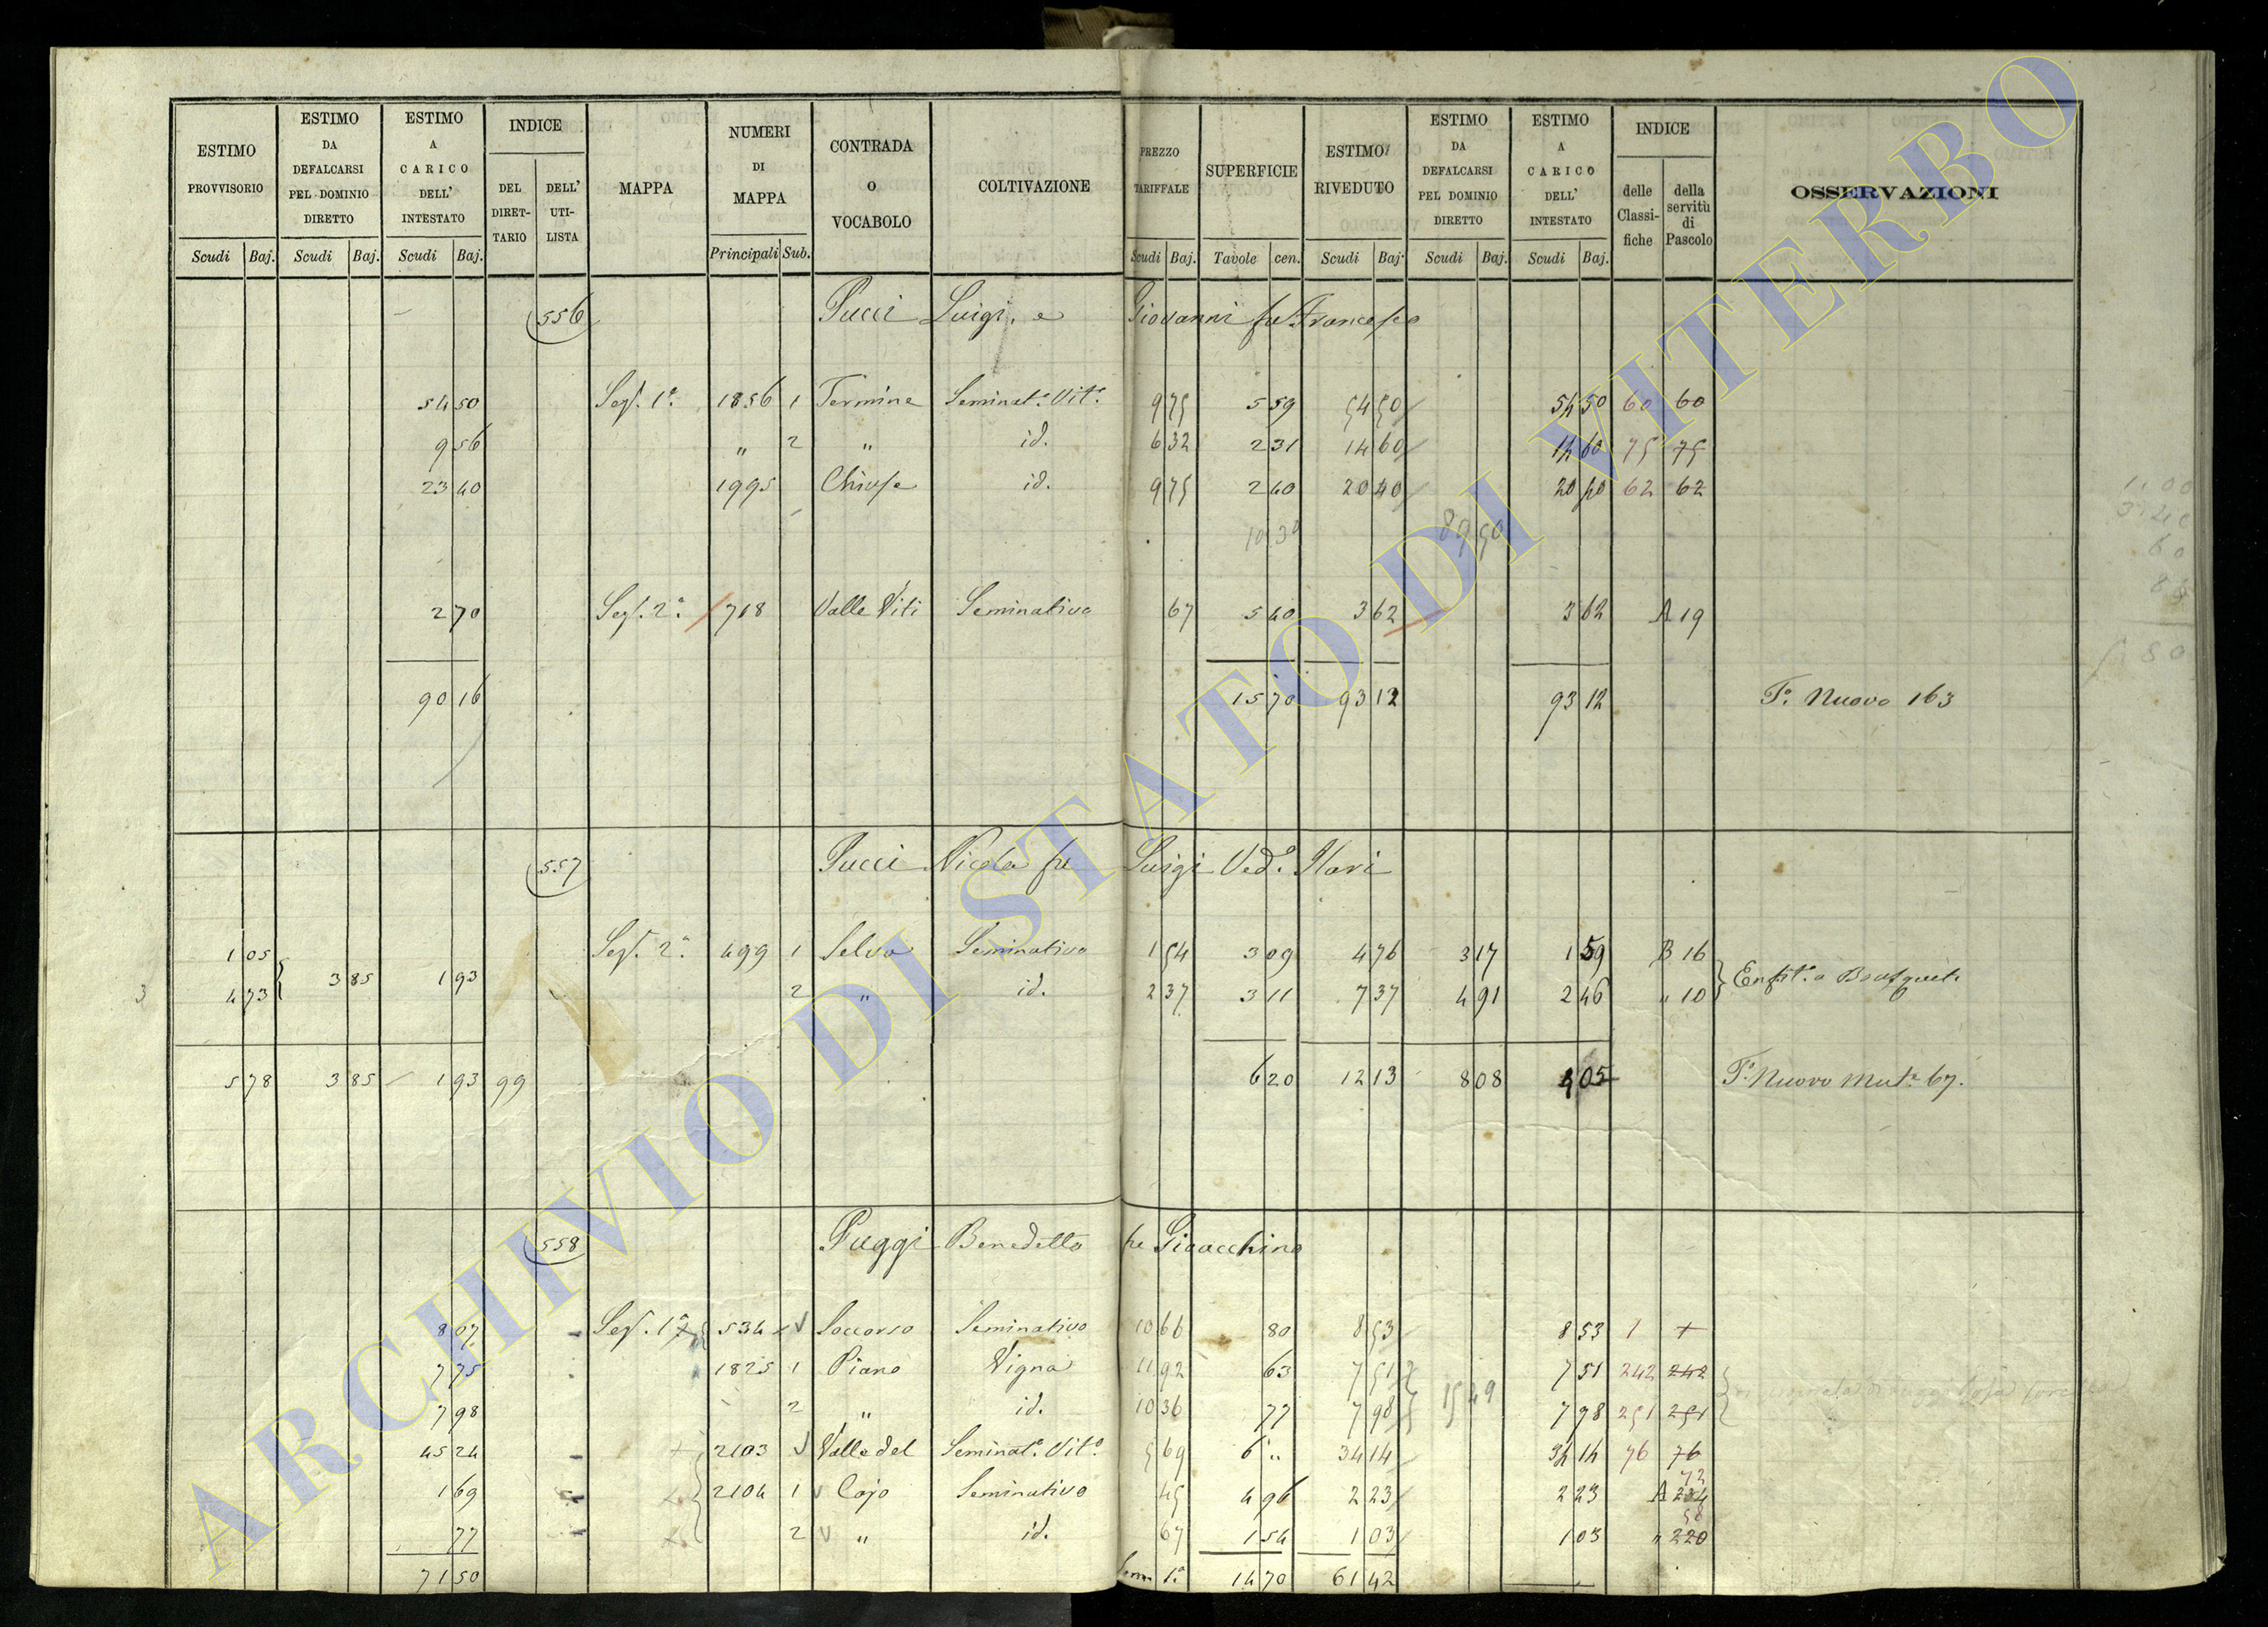 ESTIMO PROVVISORIO | ESTIMO DA DEFALCARSI PEL DOMINIO DIRETTO | ESTIMO A CARICO DELL' INTESTATO | INDICE | MAPPA | NUMERI DI MAPPA | CONTRADA O VOCABOLO | COLTIVAZIONE | PREZZO TARIFFALE | SUPERFICIE | ESTIMO RIVEDUTO | ESTIMO DA DEFALCARSI PEL DOMINIO DIRETTO | ESTIMO A CARICO DELL' INTESTATO | INDICE | OSSERVAZIONI
DEL DIRET-TARIO | DELL' UTI-LISTA | delle Classi-fiche | della servitù di Pascolo
Scudi | Baj. | Scudi | Baj. | Scudi | Baj. | Principali | Sub. | Scudi | Baj. | Tavole | cen. | Scudi | Baj. | Scudi | Baj. | Scudi | Baj.
556 Pucci Luigi, e Giovanni fu Francesco
54 50 | Sez. 1ª | 1856 | 1 | Termine | Seminatº Vitº | 9 75 | 5 59 | 54 50 | 54 50 | 60 | 60
9 56 | " | 2 | " | id. | 6 32 | 2 31 | 14 60 | 14 60 | 75 | 75
23 40 | 1995 | Chiuse | id. | 9 75 | 2 40 | 20 40 | 20 40 | 62 | 62
10 30 | 89 50
2 70 | Sez. 2ª | 718 | Valle Viti | Seminativo | 67 | 5 40 | 3 62 | 3 62 | A 19
90 16 | 15 70 | 93 12 | 93 12 | Fº Nuovo 163
557 Pucci Nicola fu Luigi Vedª Ilari
1 05 | 3 85 | 1 93 | Sez. 2ª | 499 | 1 | Selva | Seminativo | 1 54 | 3 09 | 4 76 | 3 17 | 1 59 | B 16
4 73 | 2 | " | id. | 2 37 | 3 11 | 7 37 | 4 91 | 2 46 | " 10
3
5 78 | 3 85 | 1 93 | 99 | 6 20 | 12 13 | 8 08 | 4 05 | Fº Nuovo Mutª 67.
558 Puggi Benedetto fu Gioacchino
8 07 | Sez. 1ª | 534 | Soccorso | Seminativo | 10 66 | 80 | 8 53 | 8 53 | 1
7 75 | 1825 | 1 | Piano | Vigna | 11 92 | 63 | 7 51 | 7 51 | 242 | 242
7 98 | 2 | " | id. | 10 36 | 77 | 7 98 | 15 49 | 7 98 | 251 | 251
45 24 | 2103 | Valle del | Seminatº Vitº | 5 69 | 6 " | 34 14 | 34 14 | 76 | 76
1 69 | 2104 | 1 | Cajo | Seminativo | 45 | 4 96 | 2 23 | 2 23 | A 72
77 | 2 | " | id. | 67 | 1 54 | 1 03 | 1 03 | " 220 58
71 50 | 14 70 | 61 42
ARCHIVIO DI STATO DI VITERBO